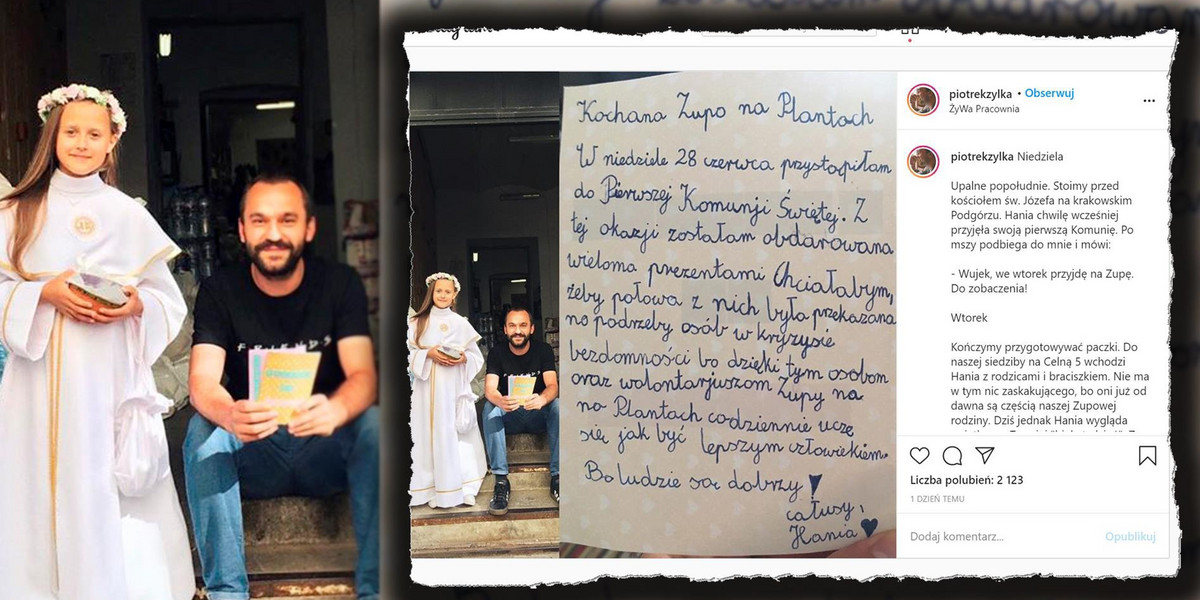 FRIENDS
Kochana Zupo na Plantach
W niedziele 28 czerwca przystąpiłam
do Pierwszej Komunji Świętej. Z
tej okazji zostałam obdarowana
wieloma prezentami Chciałabym,
żeby połowa z nich była przekazana
na podrzeby osób w kryzysie
bezdomności bo dzięki tym osobom
oraz wolontarjuszom Zupy na
na Plantach codziennie uczę
się jak być lepszym człowiekiem.
Bo ludzie są dobrzy
całusy,
Hania
piotrekzylka • Obserwuj
ŻyWa Pracownia
piotrekzylka Niedziela
Upalne popołudnie. Stoimy przed
kościołem św. Józefa na krakowskim
Podgórzu. Hania chwilę wcześniej
przyjęła swoją pierwszą Komunię. Po
mszy podbiega do mnie i mówi:
- Wujek, we wtorek przyjdę na Zupę.
Do zobaczenia!
Wtorek
Kończymy przygotowywać paczki. Do
naszej siedziby na Celną 5 wchodzi
Hania z rodzicami i braciszkiem. Nie ma
w tym nic zaskakującego, bo oni już od
dawna są częścią naszej Zupowej
rodziny. Dziś jednak Hania wygląda
Liczba polubień: 2 123
1 DZIEŃ TEMU
Dodaj komentarz...
Opublikuj